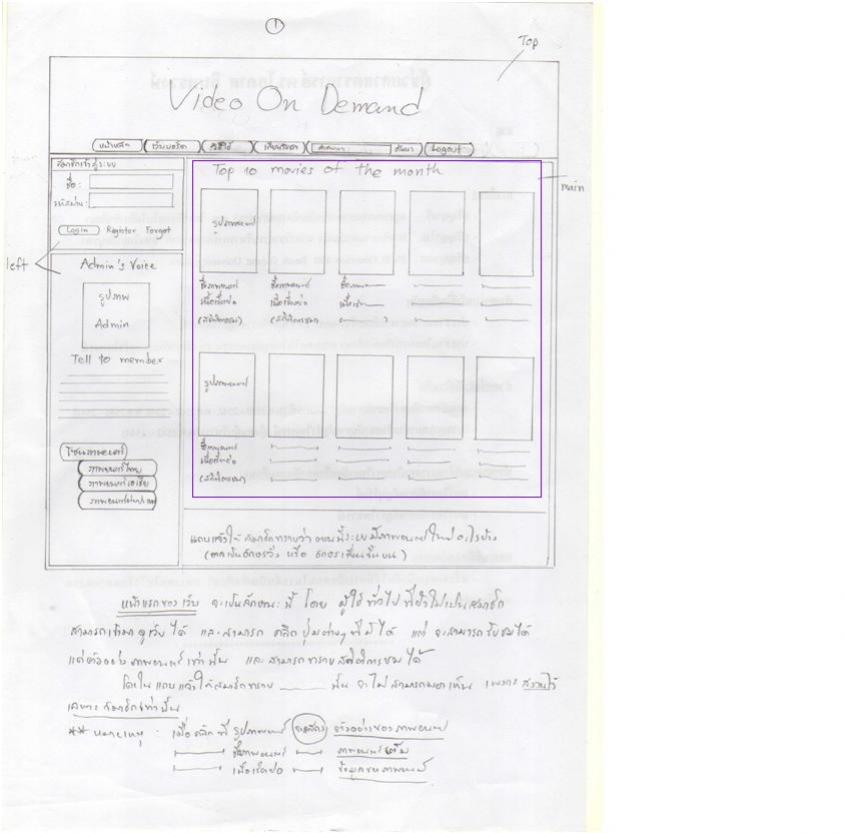 1
Top
Video On Demand
หน้าหลัก เว็บบอร์ด วิธีใช้ เกี่ยวกับเรา ค้นหา Logout
สมาชิกเข้าสู่ระบบ
ชื่อ :
รหัสผ่าน :
Login Register Forgot
left
Admin's Voice
รูปภาพ
Admin
Tell to member
ภาพยนตร์ไทย
ภาพยนตร์เอเชีย
Top 10 movies of the month
main
รูปภาพยนตร์
ชื่อภาพยนตร์ ชื่อภาพยนตร์ ชื่อ
เนื้อเรื่องย่อ เนื้อเรื่องย่อ
(สถิติการชม) (สถิติการชม)
รูปภาพยนตร์
ชื่อภาพยนตร์
เนื้อเรื่องย่อ
(สถิติการชม)
แถบแจ้งให้สมาชิกทราบว่า ตอนนี้ระบบมีภาพยนตร์ใหม่อะไรบ้าง
(อาจเป็นอักษรวิ่ง หรือ อักษรเลื่อนขึ้นบน)
หน้าแรกของเว็บ จะเป็นลักษณะนี้ โดย ผู้ใช้ทั่วไป ที่ยังไม่เป็นสมาชิก
สามารถเข้ามาดูเว็บได้ และสามารถ คลิกปุ่มต่างๆที่มีได้ แต่ จะสามารถรับชมได้
แค่ตัวอย่างภาพยนตร์เท่านั้น และสามารถทราบสถิติการชมได้
โดยในแถบแจ้งให้สมาชิกทราบ นั้น จะไม่สามารถมองเห็น เพราะ สงวนไว้
เฉพาะ สมาชิกเท่านั้น
** หมายเหตุ : เมื่อคลิกที่ รูปภาพยนตร์ ตัวอย่างของภาพยนตร์
ชื่อภาพยนตร์ ภาพยนตร์เต็ม
เนื้อเรื่องย่อ ข้อมูลของภาพยนตร์